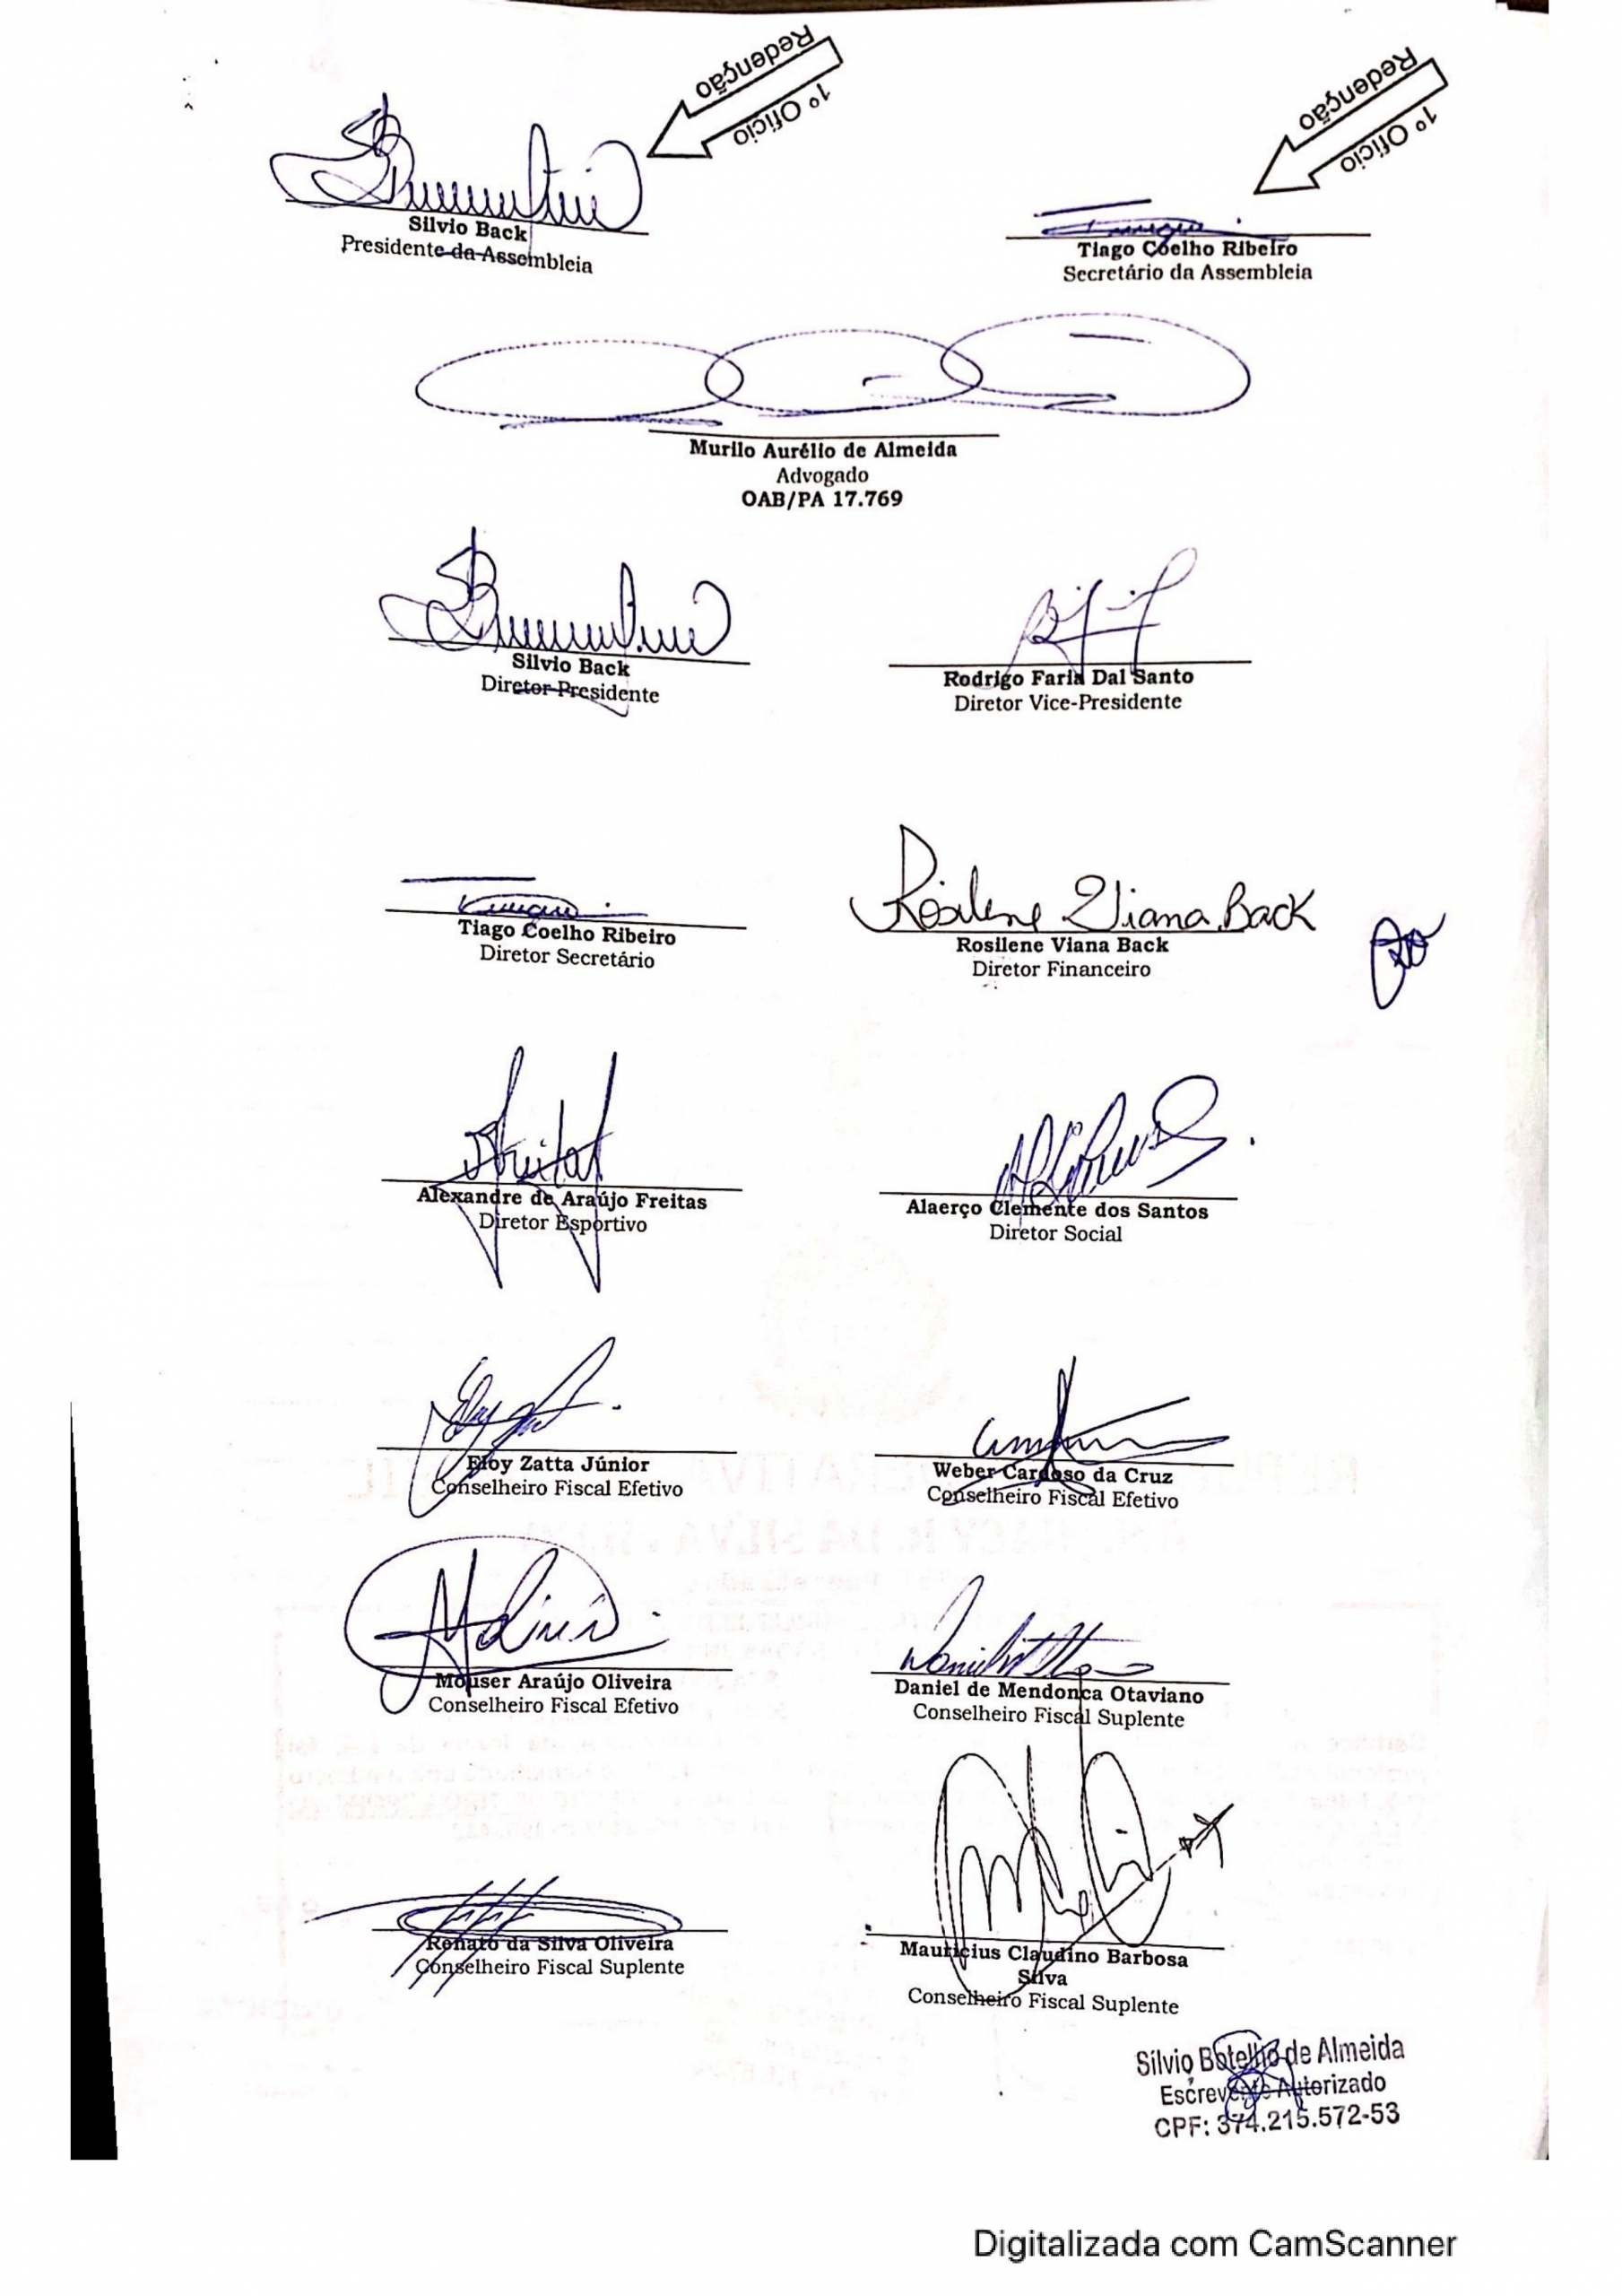 Redenção
1º Ofício
Redenção
1º Ofício
Silvio Back
Presidente da Assembleia
Tiago Coelho Ribeiro
Secretário da Assembleia
Murilo Aurélio de Almeida
Advogado
OAB/PA 17.769
Silvio Back
Diretor Presidente
Rodrigo Faria Dal Santo
Diretor Vice-Presidente
Rosilene Viana Back
Tiago Coelho Ribeiro
Diretor Secretário
Rosilene Viana Back
Diretor Financeiro
Alexandre de Araújo Freitas
Diretor Esportivo
Alaerço Clemente dos Santos
Diretor Social
Eloy Zatta Júnior
Conselheiro Fiscal Efetivo
Weber Cardoso da Cruz
Conselheiro Fiscal Efetivo
Mouser Araújo Oliveira
Conselheiro Fiscal Efetivo
Daniel de Mendonca Otaviano
Conselheiro Fiscal Suplente
Renato da Silva Oliveira
Conselheiro Fiscal Suplente
Mauricius Claudino Barbosa
Silva
Conselheiro Fiscal Suplente
Silvio Botelho de Almeida
Escrevente Autorizado
CPF: 374.215.572-53
Digitalizada com CamScanner